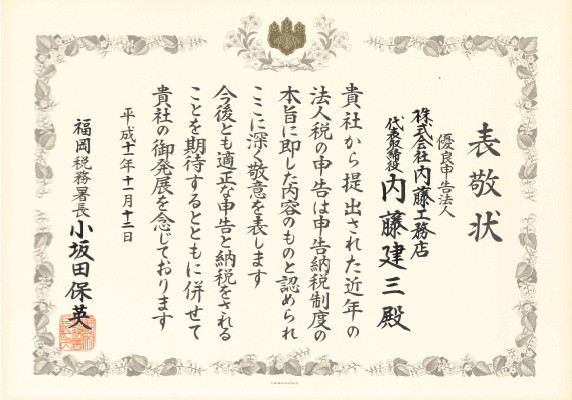 表敬状
優良申告法人
株式会社内藤工務店
代表取締役 内藤建三殿
貴社から提出された近年の
法人税の申告は申告納税制度の
本旨に即した内容のものと認められ
ここに深く敬意を表します
今後とも適正な申告と納税をされる
ことを期待するとともに併せて
貴社の御発展を念じております
平成十一年十一月十二日
福岡税務署長 小坂田保英